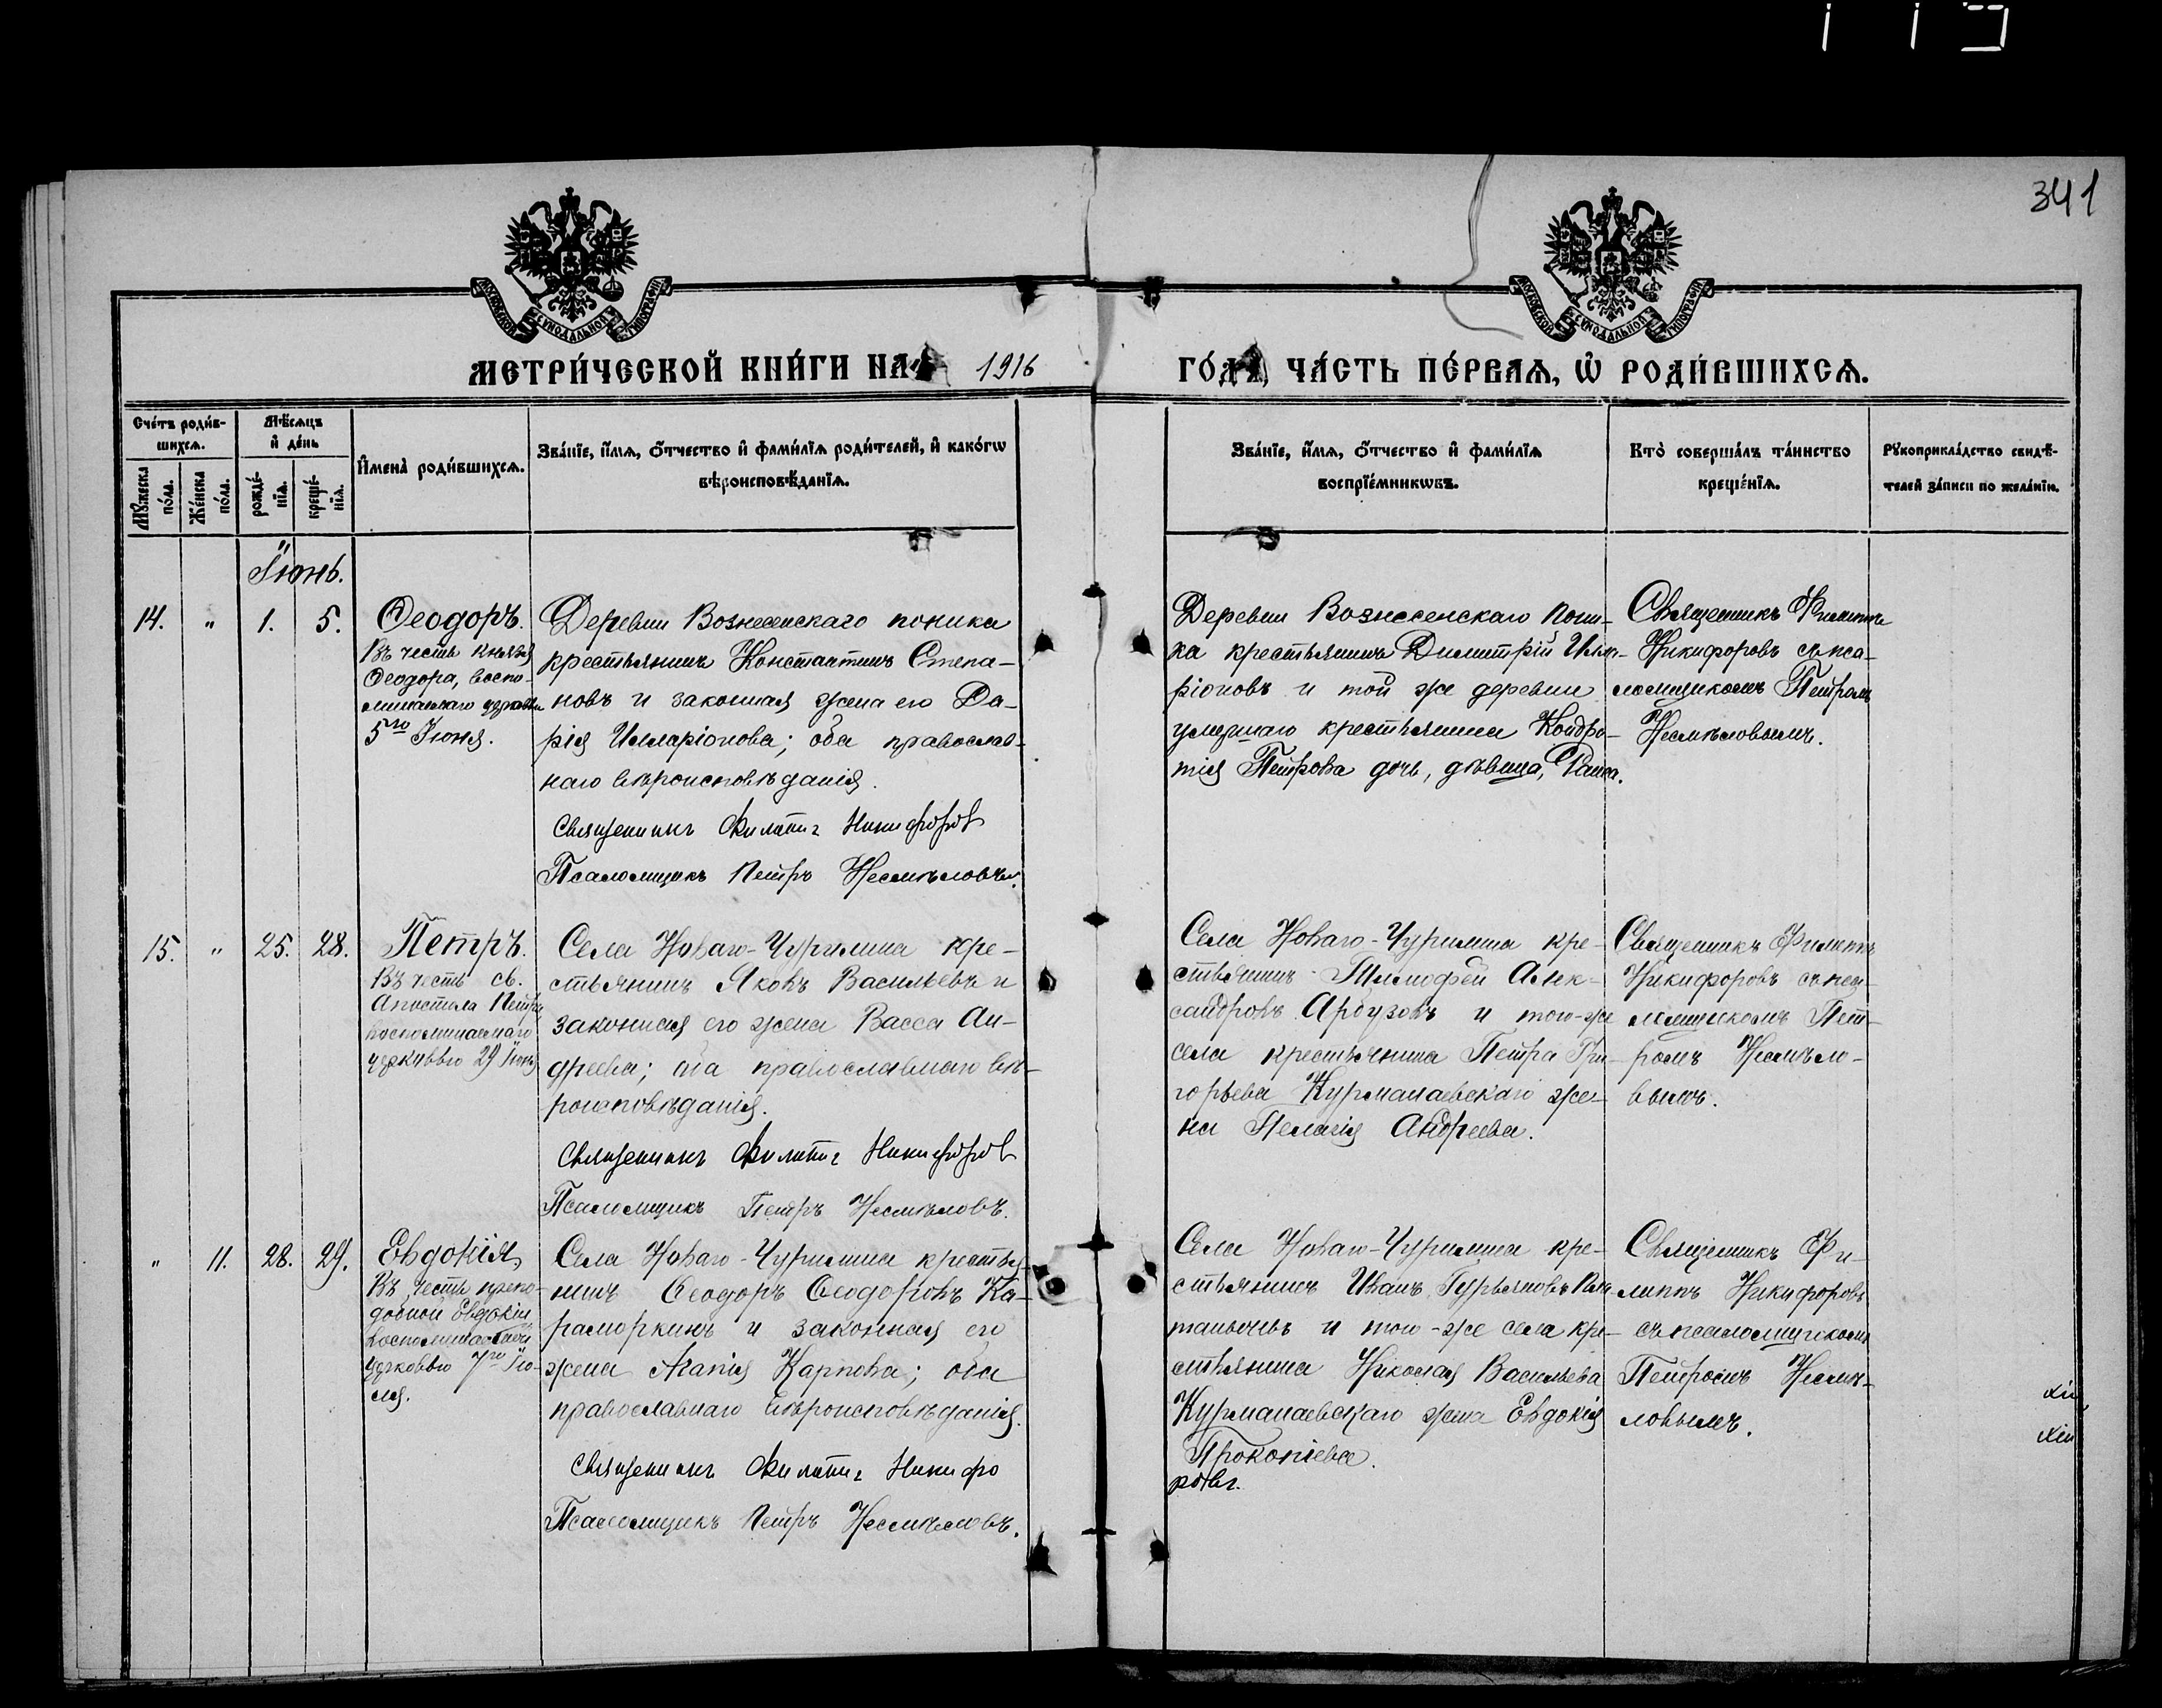 341
МОСКОВСКОЙ СѴНОДАЛЬНОЙ ТИПОГРАФІИ
МОСКОВСКОЙ СѴНОДАЛЬНОЙ ТИПОГРАФІИ
МЕТРИ́ЧЕСКОЙ КНИ́ГИ НА 1916 ГО́ДЪ, ЧА́СТЬ ПЕ́РВАѦ, Ѡ҆ РОДИ́ВШИХСѦ.
Сче́тъ роди́в-
шихсѧ.
Мꙋ́жеска по́ла.
Же́нска по́ла.
Мѣ́сѧцъ
и҆ де́нь
рожде́-
нїѧ.
креще́-
нїѧ.
И҆мена̀ роди́вшихсѧ.
Зва́нїе, и҆́мѧ, ѻ҆́тчество и҆ фами́лїѧ роди́телей, и҆ како́гѡ
вѣроисповѣ́данїѧ.
Зва́нїе, и҆́мѧ, ѻ҆́тчество и҆ фами́лїѧ
воспрїе́мникѡвъ.
Кто̀ соверша́лъ та́инство
креще́нїѧ.
Рꙋкоприкла́дство свидѣ́-
телей за́писи по жела́нїю.
Іюнь.
14. " 1. 5.
Ѳеодоръ.
Въ честь князя
Ѳеодора, воспо-
минаемаго церковію
5го Іюня.
Деревни Вознесенскаго поника
крестьянинъ Константинъ Степа-
новъ и законная жена его Да-
рія Илларіонова; оба православ-
наго вѣроисповѣданія.
Священникъ Филиппъ Никифоровъ
Псаломщикъ Петръ Несмѣловъ.
Деревни Вознесенскаго пони-
ка крестьянинъ Димитрій Илла-
ріоновъ и той же деревни
умершаго крестьянина Кондра-
тія Петрова дочь, дѣвица, Раиса.
Священникъ Филиппъ
Никифоровъ съ пса-
ломщикомъ Петромъ
Несмѣловымъ.
15. " 25. 28.
Петръ.
Въ честь св.
Апостола Петра
воспоминаемаго
церковью 29 Іюня
Села Новаго-Чурилина кре-
стьянинъ Яковъ Васильевъ и
законная его жена Васса Ан-
дреева; оба православнаго вѣ-
роисповѣданія.
Священникъ Филиппъ Никифоровъ
Псаломщикъ Петръ Несмѣловъ.
Села Новаго-Чурилина кре-
стьянинъ Тимофей Алек-
сандровъ Арбузовъ и того-же
села крестьянина Петра Гри-
горьева Курманаевскаго же-
на Пелагія Андреева.
Священникъ Филиппъ
Никифоровъ съ пса-
ломщикомъ Пет-
ромъ Несмѣло-
вымъ.
" 11. 28. 29.
Евдокія,
Въ честь препо-
добной Евдокіи
воспоминаемой
церковью 7го Ію-
ля.
Села Новаго-Чурилина крестья-
нинъ Ѳеодоръ Ѳеодоровъ Ка-
раморкинъ и законная его
жена Агапія Карпова; оба
православнаго вѣроисповѣданія.
Священникъ Филиппъ Никифо
Псаломщикъ Петръ Несмѣловъ.
Села Новаго-Чурилина кре-
стьянинъ Иванъ Гурьяновъ
и того-же села кре-
стьянина Николая Васильева
Курманаевскаго жена Евдокія
Прокопіева.
ровъ.
Священникъ Фи-
липпъ Никифоровъ
съ псаломщикомъ
Петромъ Несмѣ-
ловымъ.